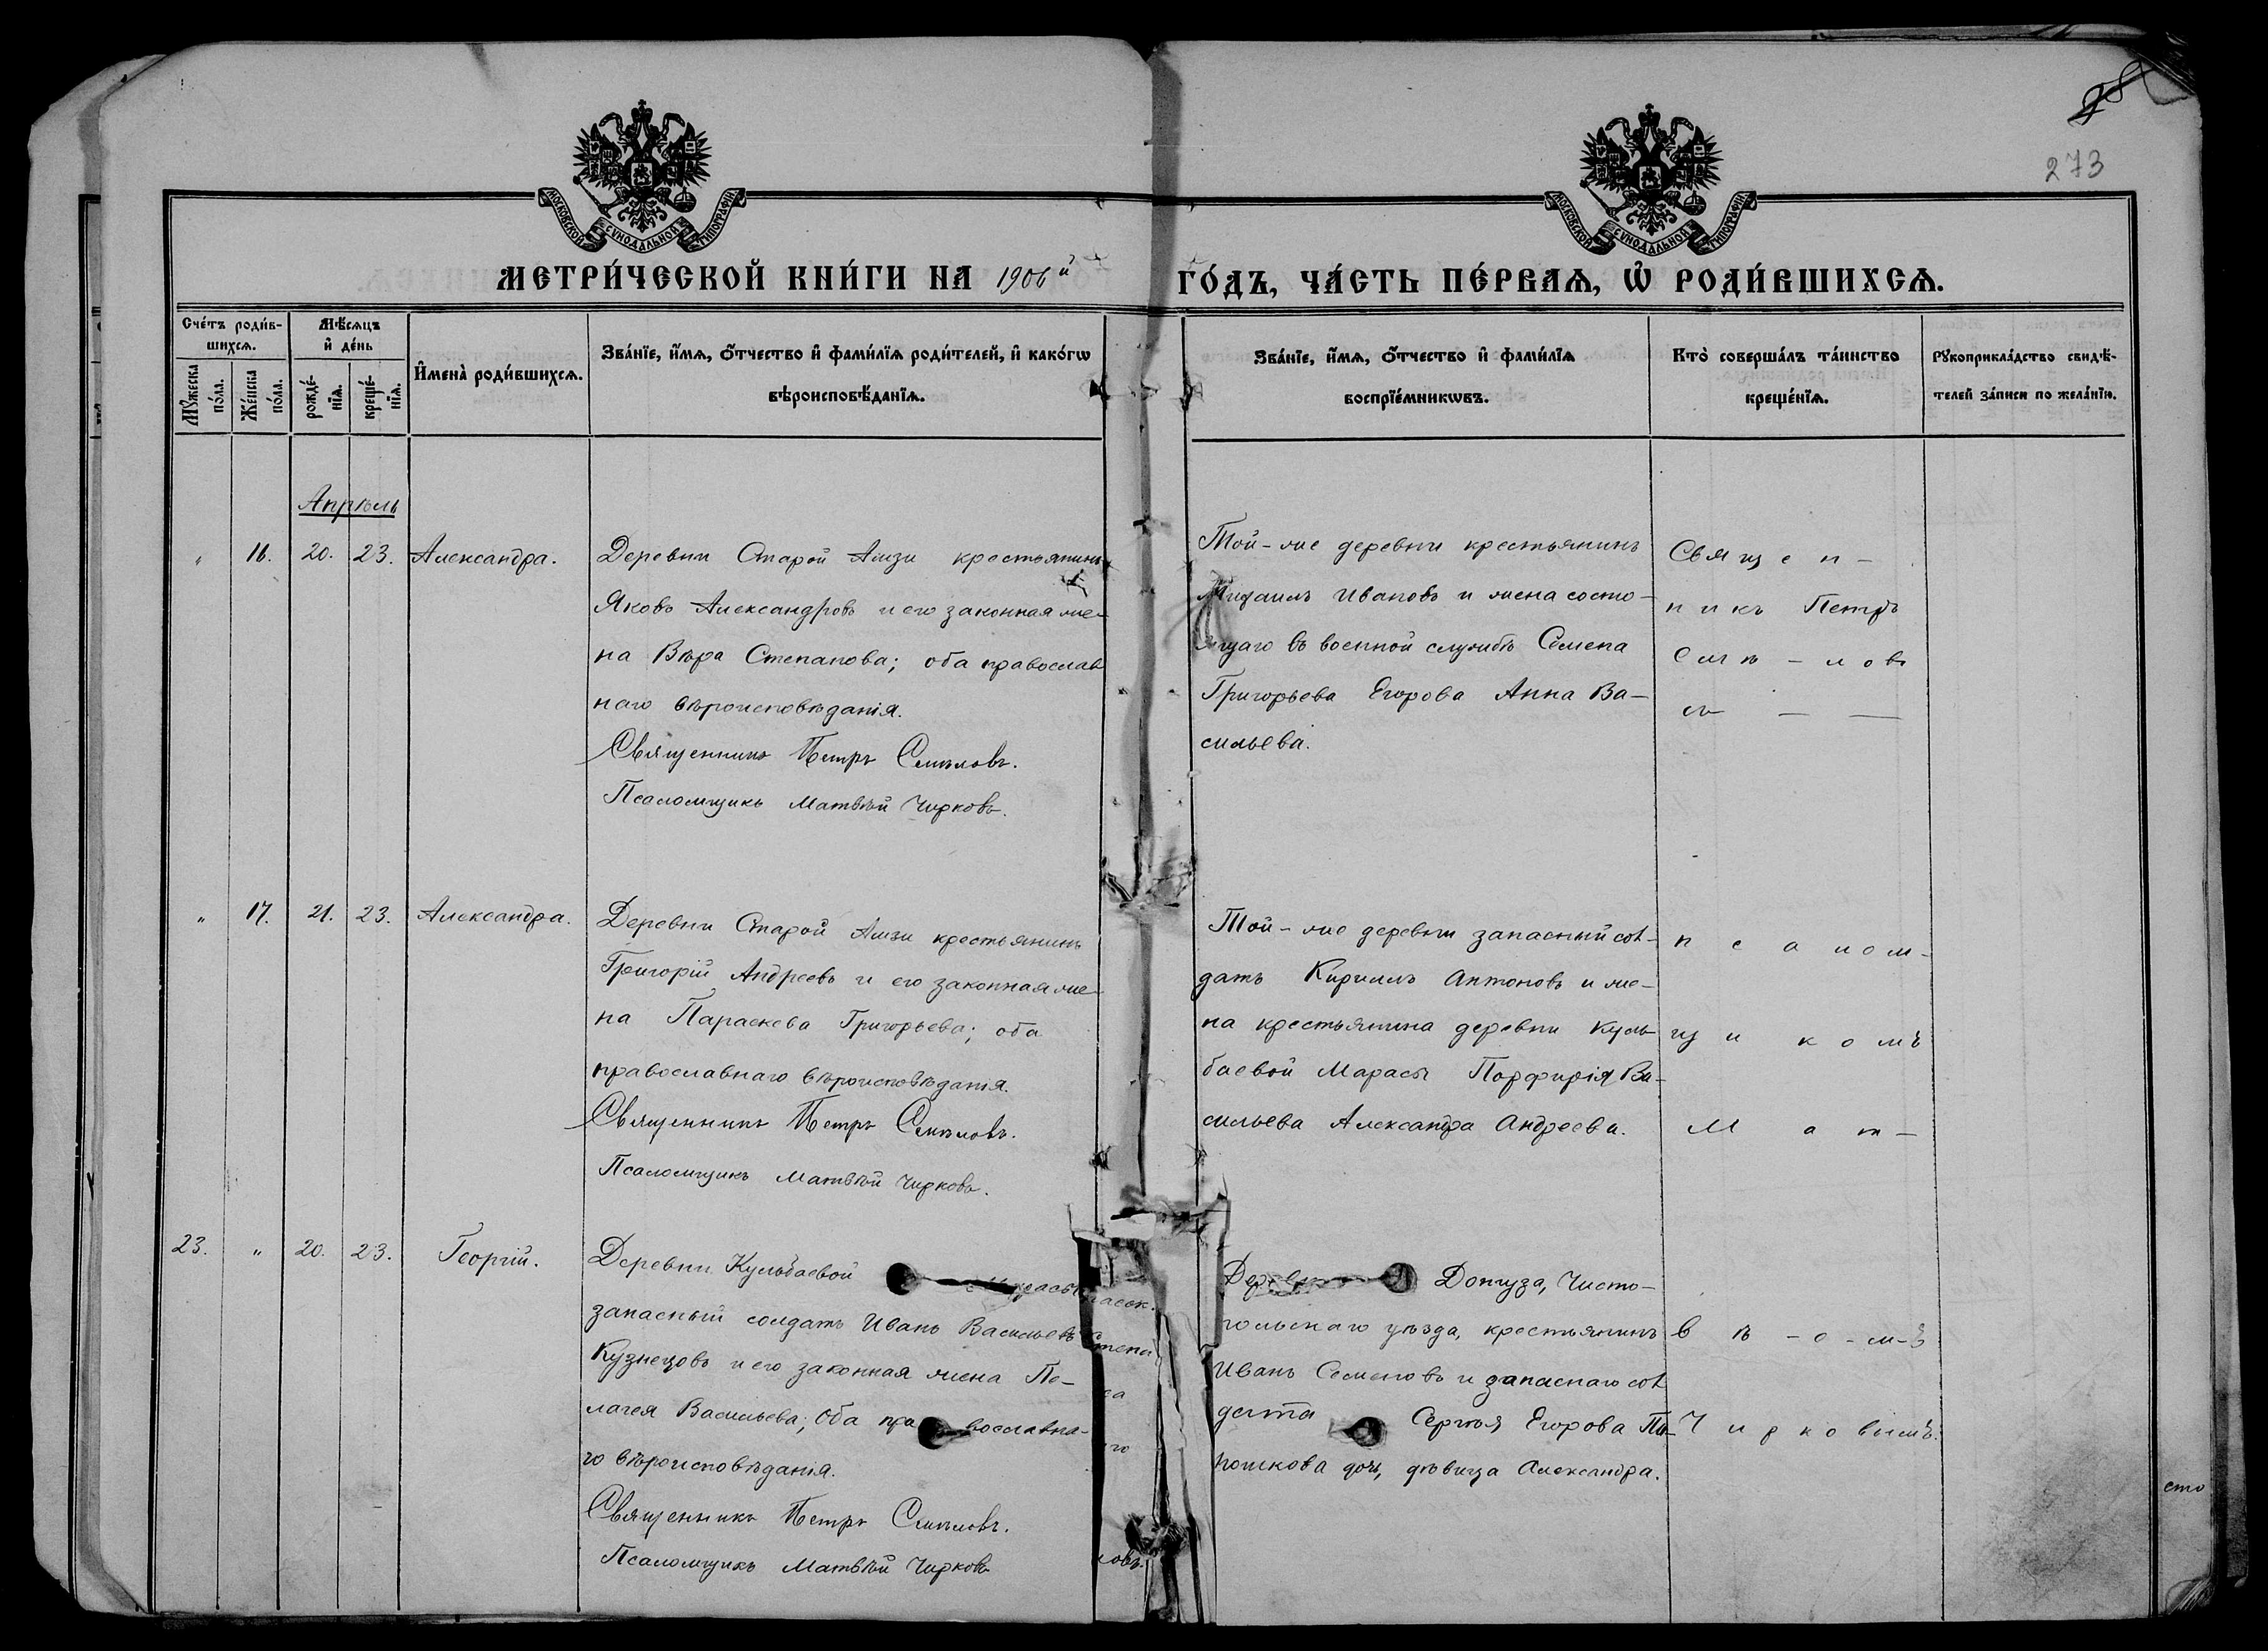 28
273
МОСКОВСКОЙ СѴНОДАЛЬНОЙ ТИПОГРАФІИ.
МОСКОВСКОЙ СѴНОДАЛЬНОЙ ТИПОГРАФІИ.
МЕТРИ́ЧЕСКОЙ КНИ́ГИ НА 1906й ГО́ДЪ, ЧА́СТЬ ПЕ́РВАѦ, Ѡ҆ РОДИ́ВШИХСѦ.
Сче́тъ роди́в-
шихсѧ.
Мꙋ́жеска по́ла.
Же́нска по́ла.
Мѣ́сѧцъ
и҆ де́нь
рожде́-
нїѧ.
креще́-
нїѧ.
И҆мена̀ роди́вшихсѧ.
Зва́нїе, и҆́мѧ, ѻ҆́тчество и҆ фами́лїѧ роди́телей, и҆ како́гѡ
вѣроисповѣ́данїѧ.
Зва́нїе, и҆́мѧ, ѻ҆́тчество и҆ фами́лїѧ
воспрїе́мникѡвъ.
Кто̀ соверша́лъ та́инство
креще́нїѧ.
Рꙋкоприкла́дство свидѣ́-
телей за́писи по жела́нїю.
Апрѣль
" 16. 20. 23. Александра.
Деревни Старой Амзи крестьянинъ
Яковъ Александровъ и его законная же-
на Вѣра Степанова; оба православ
наго вѣроисповѣданія.
Священникъ Петръ Смѣловъ.
Псаломщикъ Матвѣй Чирковъ.
Той-же деревни крестьянинъ
Михаилъ Ивановъ и жена состо-
ящаго въ военной службѣ Семена
Григорьева Егорова Анна Ва-
сильева.
Священ-
никъ Петръ
Смѣ-ловъ
съ — —
" 17. 21. 23. Александра.
Деревни Старой Амзи крестьянинъ
Григорій Андреевъ и его законная же-
на Параскева Григорьева; оба
православнаго вѣроисповѣданія.
Священникъ Петръ Смѣловъ.
Псаломщикъ Матвѣй Чирковъ.
Той-же деревни запасный сол-
датъ Кириллъ Антоновъ и же-
на крестьянина деревни Куль-
баевой Марасы Порфирія Ва-
сильева Александра Андреева.
псалом-
щикомъ
Мат-
23. " 20. 23. Георгій.
Деревни Кульбаевой Марасы
запасный солдатъ Иванъ Васильевъ
Кузнецовъ и его законная жена Пе-
лагея Васильева; Оба православна-
го вѣроисповѣданія.
Священникъ Петръ Смѣловъ.
Псаломщикъ Матвѣй Чирковъ
Деревни Донгуза, Чисто-
польскаго уѣзда, крестьянинъ
Иванъ Семеновъ и запаснаго сол
дата Сергѣя Егорова
дочь, дѣвица Александра.
вѣ-е-м-ъ
Чирковымъ.
ловъ.
сто